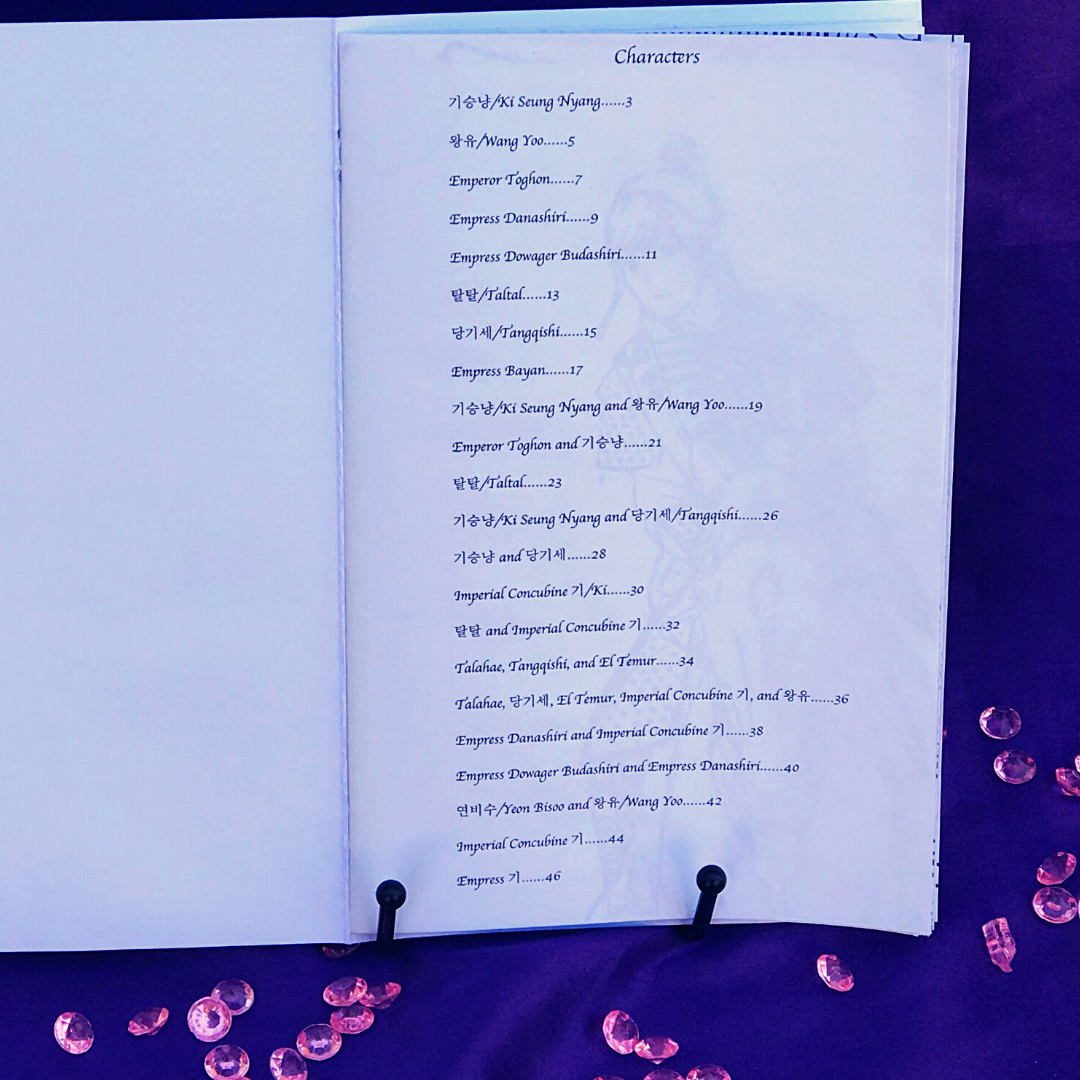 Characters
기승냥/Ki Seung Nyang......3
왕유/Wang Yoo......5
Emperor Toghon......7
Empress Danashiri......9
Empress Dowager Budashiri......11
탈탈/Taltal......13
당기세/Tangqishi......15
Empress Bayan......17
기승냥/Ki Seung Nyang and 왕유/Wang Yoo......19
Emperor Toghon and 기승냥......21
탈탈/Taltal......23
기승냥/Ki Seung Nyang and 당기세/Tangqishi......26
기승냥 and 당기세......28
Imperial Concubine 기/Ki......30
탈탈 and Imperial Concubine 기......32
Talahae, Tangqishi, and El Temur......34
Talahae, 당기세, El Temur, Imperial Concubine 기, and 왕유......36
Empress Danashiri and Imperial Concubine 기......38
Empress Dowager Budashiri and Empress Danashiri......40
연비수/Yeon Bisoo and 왕유/Wang Yoo......42
Imperial Concubine 기......44
Empress 기......46